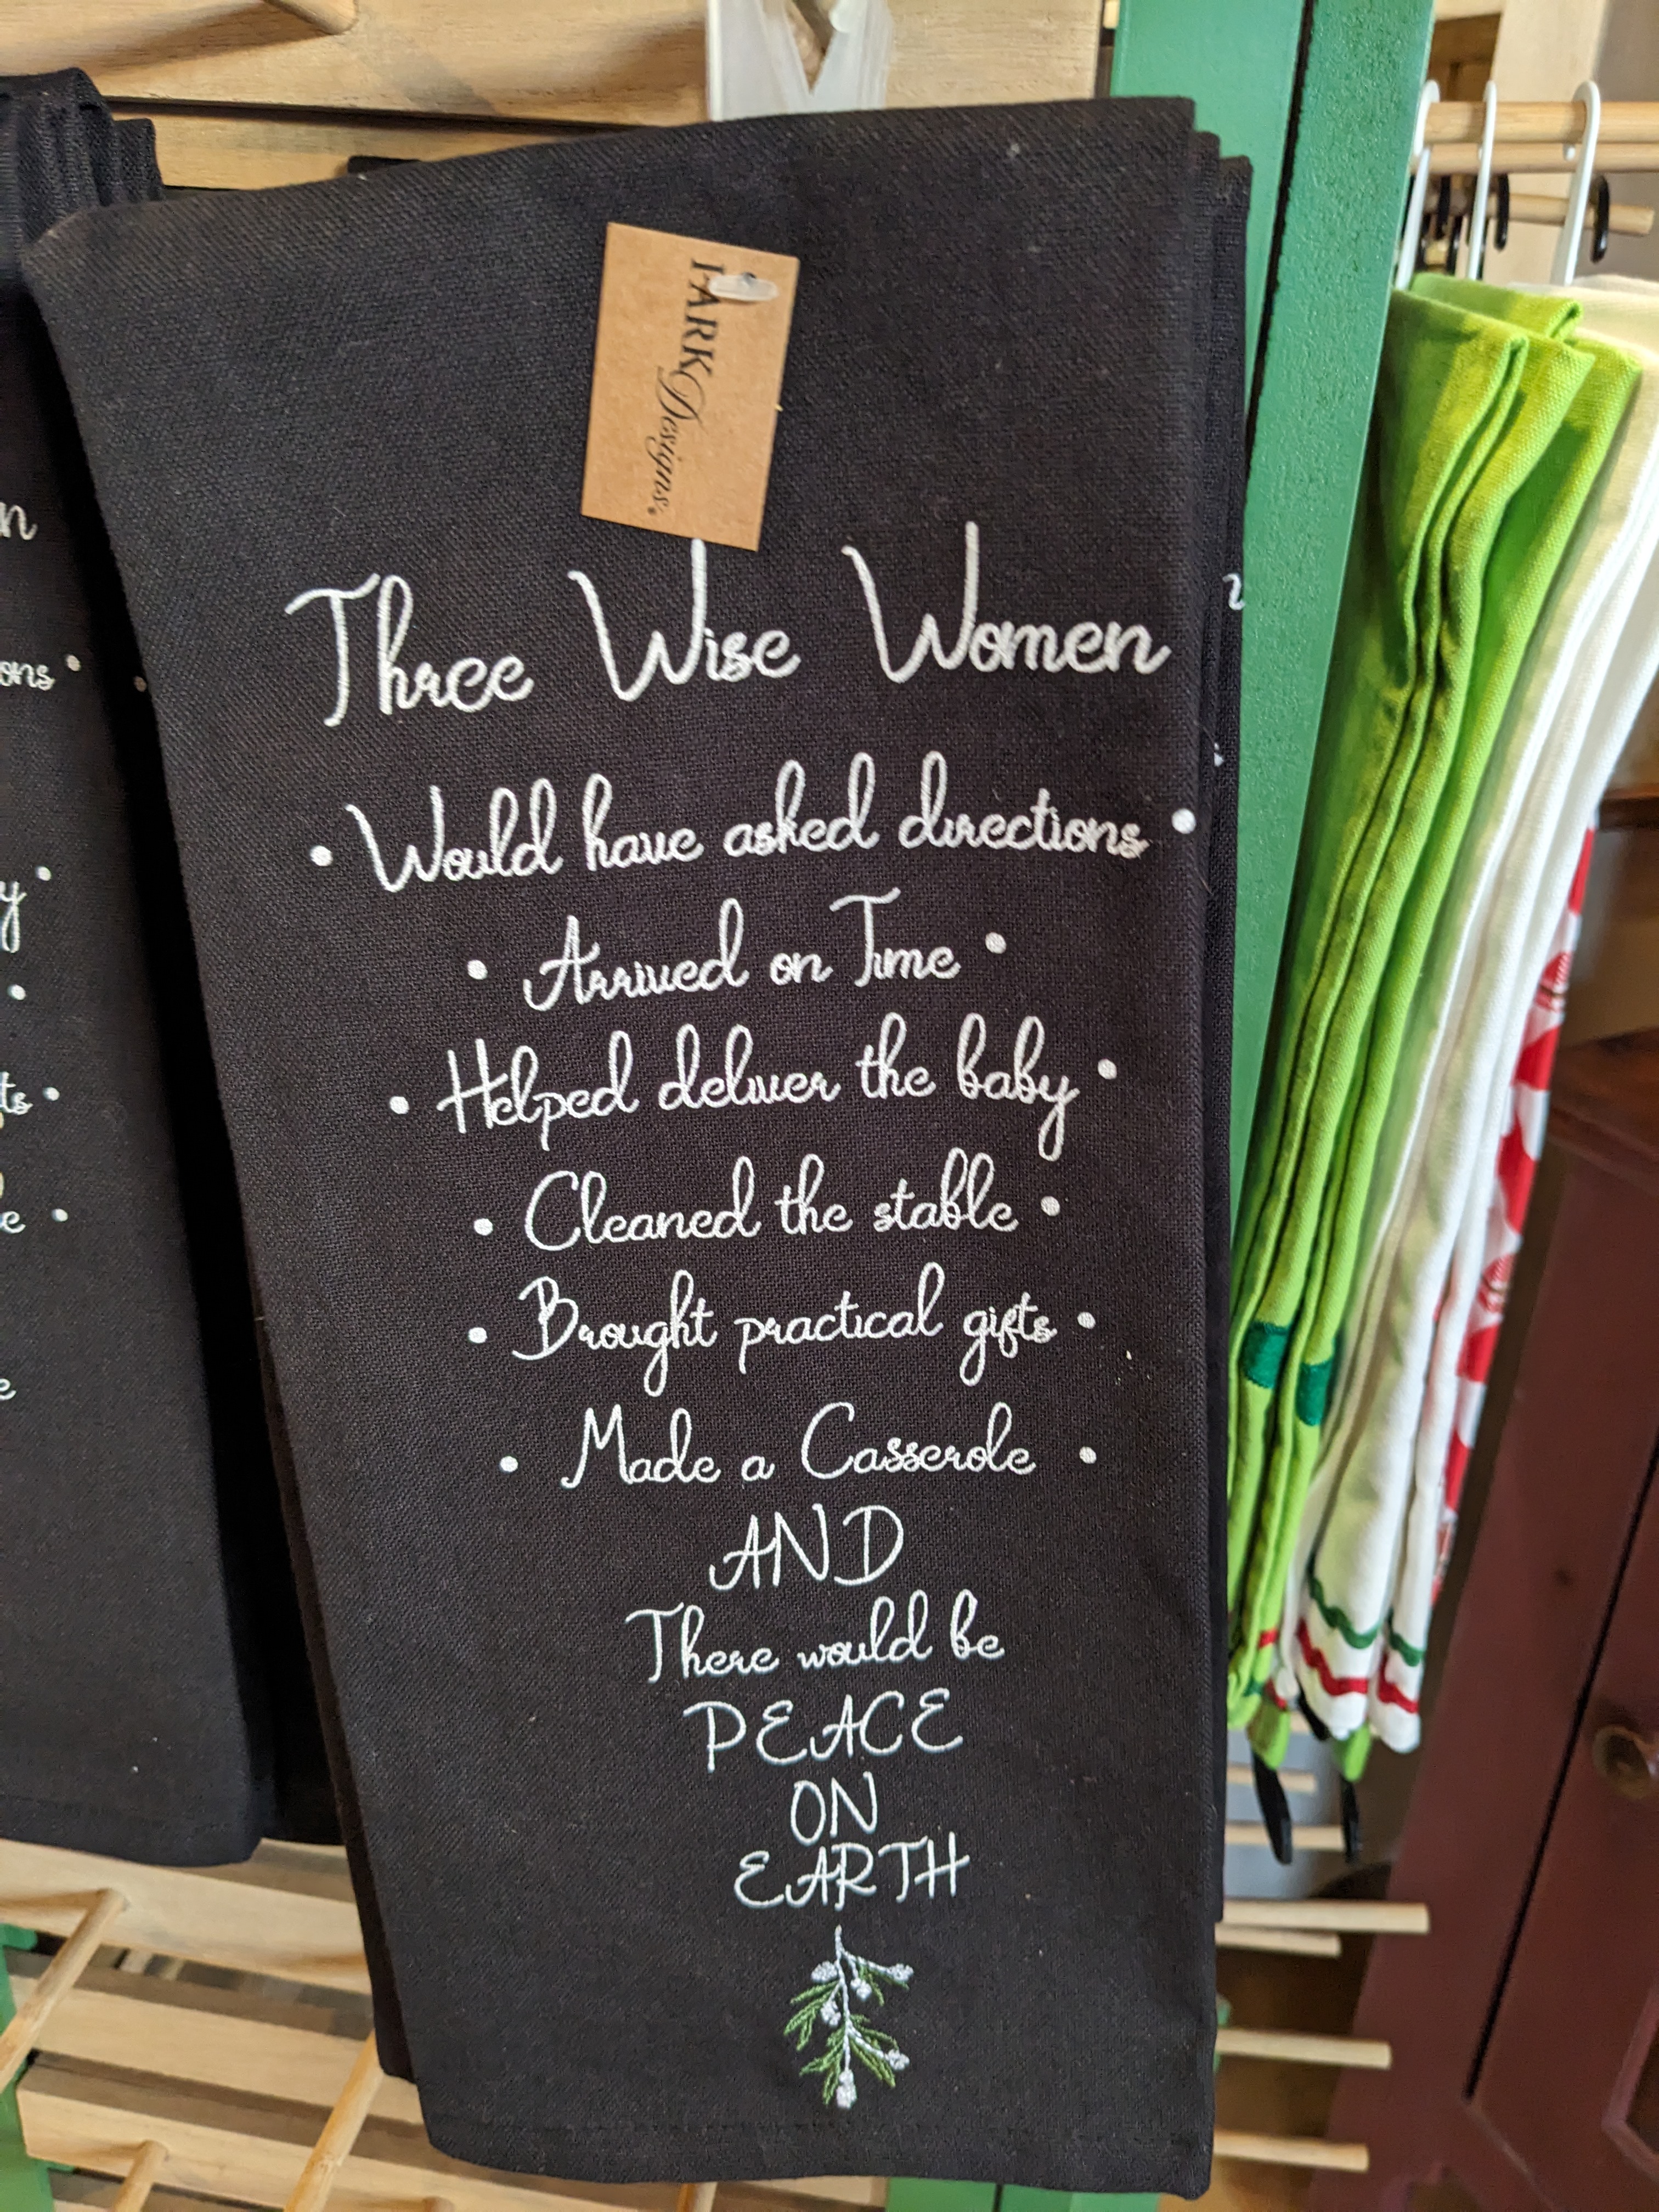 PARK Designs.
Three Wise Women
• Would have asked directions •
• Arrived on Time •
• Helped deliver the baby •
• Cleaned the stable •
• Brought practical gifts •
• Made a Casserole •
AND
There would be
PEACE
ON
EARTH